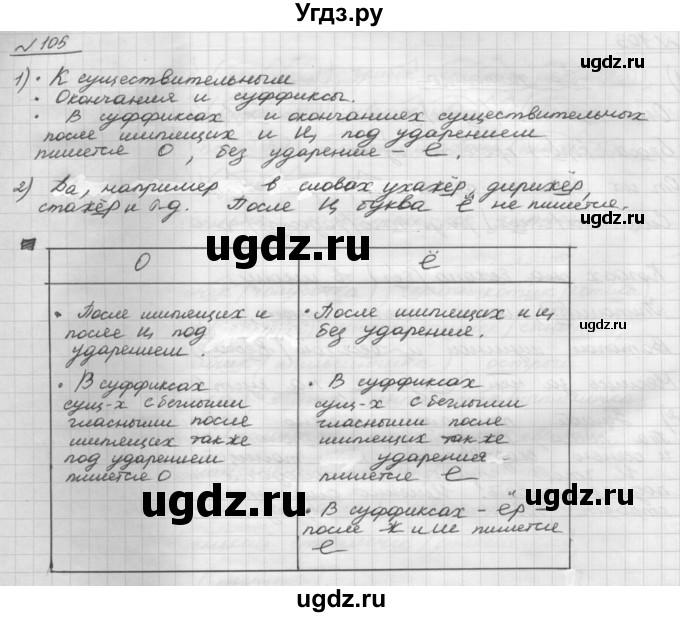 Угдз.ру
№ 105
1) • К существительным
• Окончания и суффиксы.
• В суффиксах и окончаниях существительных
после шипящих и ц под ударением
пишется О, без ударение – ё.
2) Да, например – в словах ухажёр, дирижёр,
стажёр и т.д. После ц буква ё не пишется.
О
• После шипящих и
после ц под
ударением.
• В суффиксах
сущ-х с беглыми
гласными после
шипящих также
под ударением
пишется О
Ё
• После шипящих и ц
без ударение.
• В суффиксах
сущ-х с беглыми
гласными после
шипящих также
ударения -
пишется ё
• В суффиксах – ёр –
после ж и ш пишется
ё
ugdz.ru
ugdz.ru
ugdz.ru
ugdz.ru
ugdz.ru
ugdz.ru
ugdz.ru
ugdz.ru